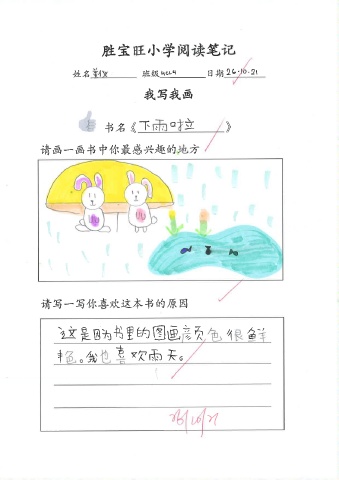 胜宝旺小学阅读笔记
姓名 班级 日期 26.10.21
我写我画
书名《下雨啦》
请画一画书中你最感兴趣的地方
请写一写你喜欢这本书的原因
这是因为书里的图画颜色很鲜
色。我也喜欢雨天。
26/10/21